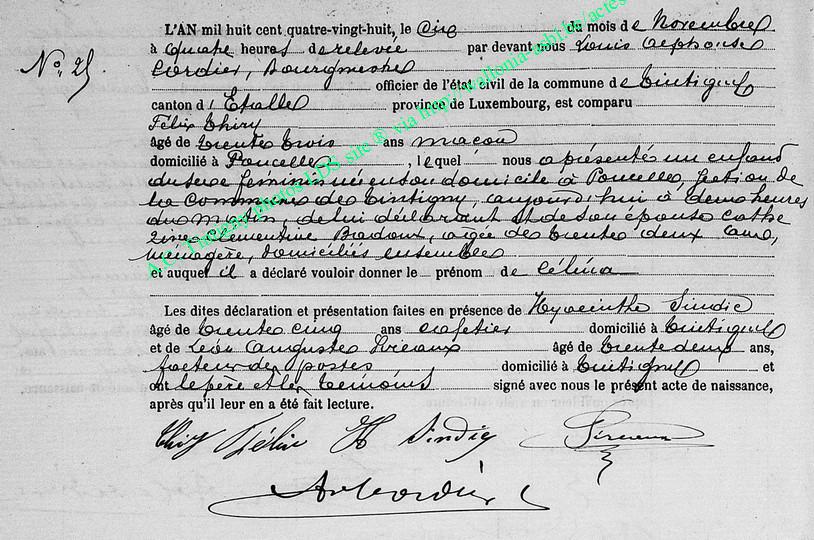 L'AN mil huit cent quatre-vingt-huit, le Cinq du mois de Novembre
No. 25
à Quatre heures de relevée par devant nous Louis Alphonse
Cordier, Bourgmestre
officier de l'état civil de la commune de Tintigny
canton d'Etalle province de Luxembourg, est comparu
Félix Thiry
âgé de trente trois ans maçon
domicilié à Poncelle, lequel nous a présenté un enfant
du sexe féminin né en son domicile à Poncelle, section de
la Commune de Tintigny, aujourd'hui à deux heures
du matin, de lui déclarant et de son épouse Cathe
rine Clémentine Badoux, agée de trente deux ans,
ménagère, domiciliés ensemble
et auquel il a déclaré vouloir donner le prénom de Célina
Les dites déclaration et présentation faites en présence de Hyacinthe Sindic
âgé de trente cinq ans cafetier domicilié à Tintigny
et de Léon Auguste âgé de trente deux ans,
facteur des postes domicilié à Tintigny et
ont le père et les témoins signé avec nous le présent acte de naissance,
après qu'il leur en a été fait lecture.
Thiry Félix H Sindic
A Cordier